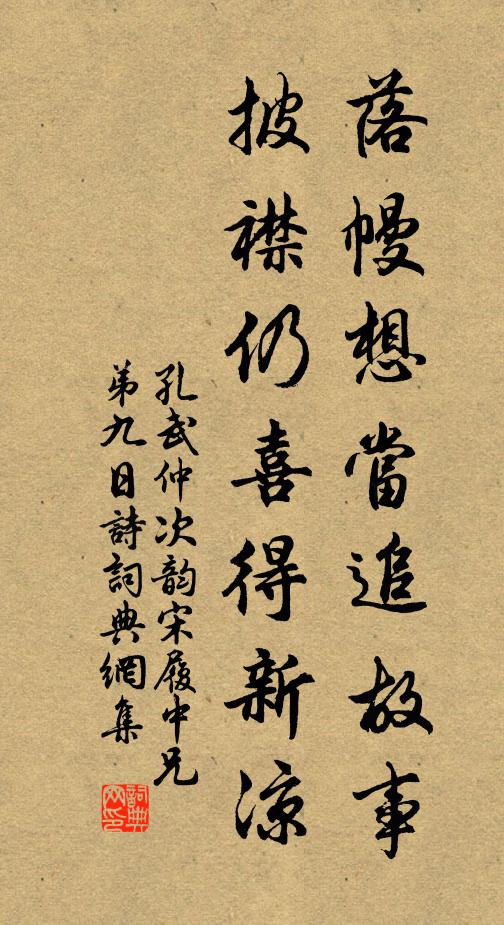 落幔想當追故事
披襟仍喜得新涼
孔武仲次韵宋履中兄
弟九日詩詞典網集
詞典網印